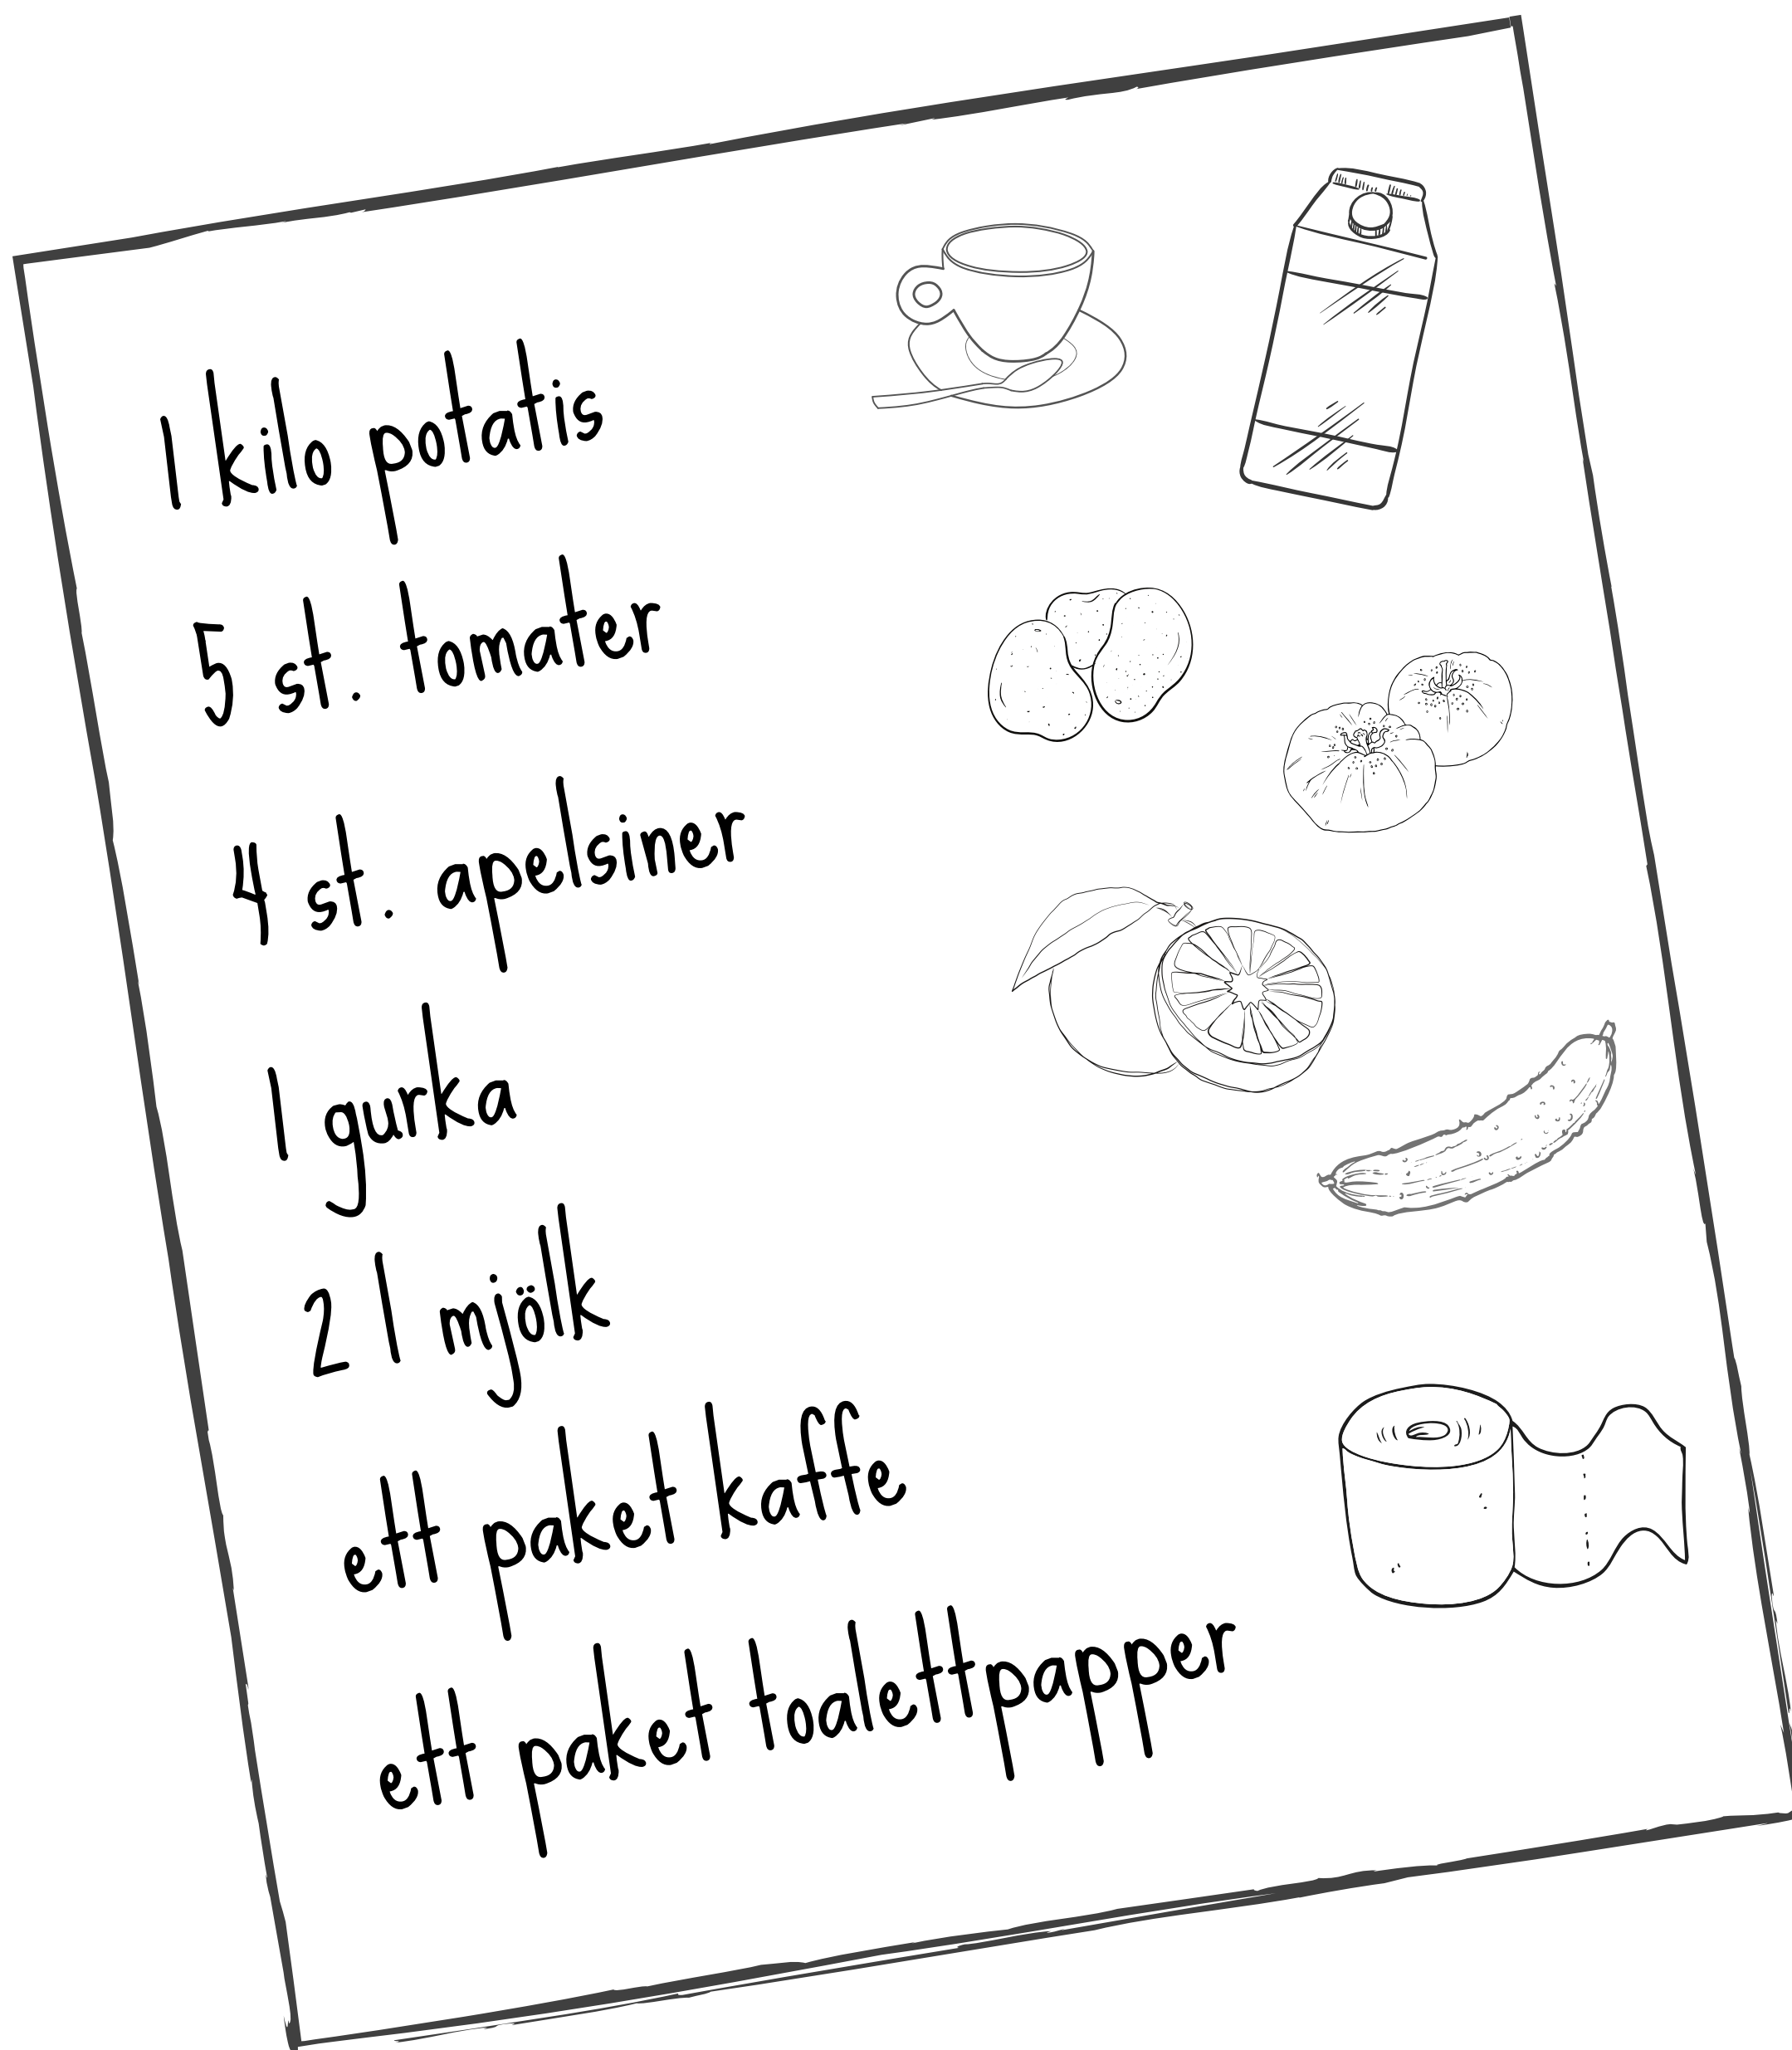 1 kilo potatis
5 st. tomater
4 st. apelsiner
1 gurka
2 l mjölk
ett paket kaffe
ett paket toalettpapper